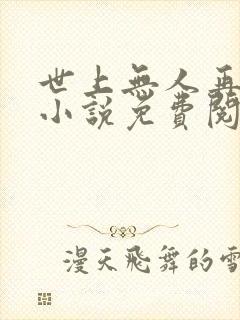 世上無人再
小說免費閱
漫天飛舞的雪